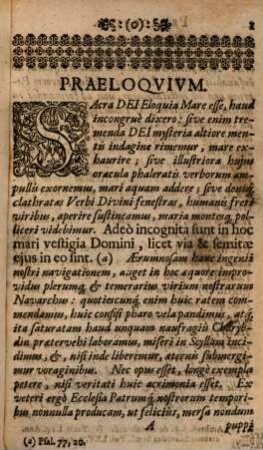 :(o):
PRAELOQVIVM.
SAcra DEI Eloquia Mare esse, haud
incongruè dixero: sive enim tre-
menda DEI mysteria altiore men-
tis indagine rimemur, mare ex-
haurire; sive illustriora hujus
oracula phaleratis verborum am-
pullis exornemus, mari aquam addere; sive deniq;
clathratas Verbi Divini fenestras, humanis freti
viribus, aperire sustineamus, maria montesq; pol-
liceri videbimur. Adeò incognita sunt in hoc
mari vestigia Domini, licet via & semitæ
ejus in eo sint. (a) Ærumnosam hanc ingenii
nostri navigationem, auget in hoc æquore impro-
vidus plerumq; & temerarius virium nostrarum
Navarchus: quotiescunq; enim huic ratem com-
mendamus, huic confisi pharo vela pandimus, at-
ita saturatam haud unquam naufragiis Charyb-
din prætervehi laboramus, miseri in Scyllam inci-
dimus, &, nisi inde liberemur, æternùm submergi-
mur voraginibus. Nec opus esset, longè exempla
petere, nisi veritati huic acrimonia esset. Ex
veteri ergò Ecclesia Patrumq; nostrorum tempori-
bus nonnulla producam, ut feliciùs, mersa nondum
A puppi
(a) Psal. 77, 20.